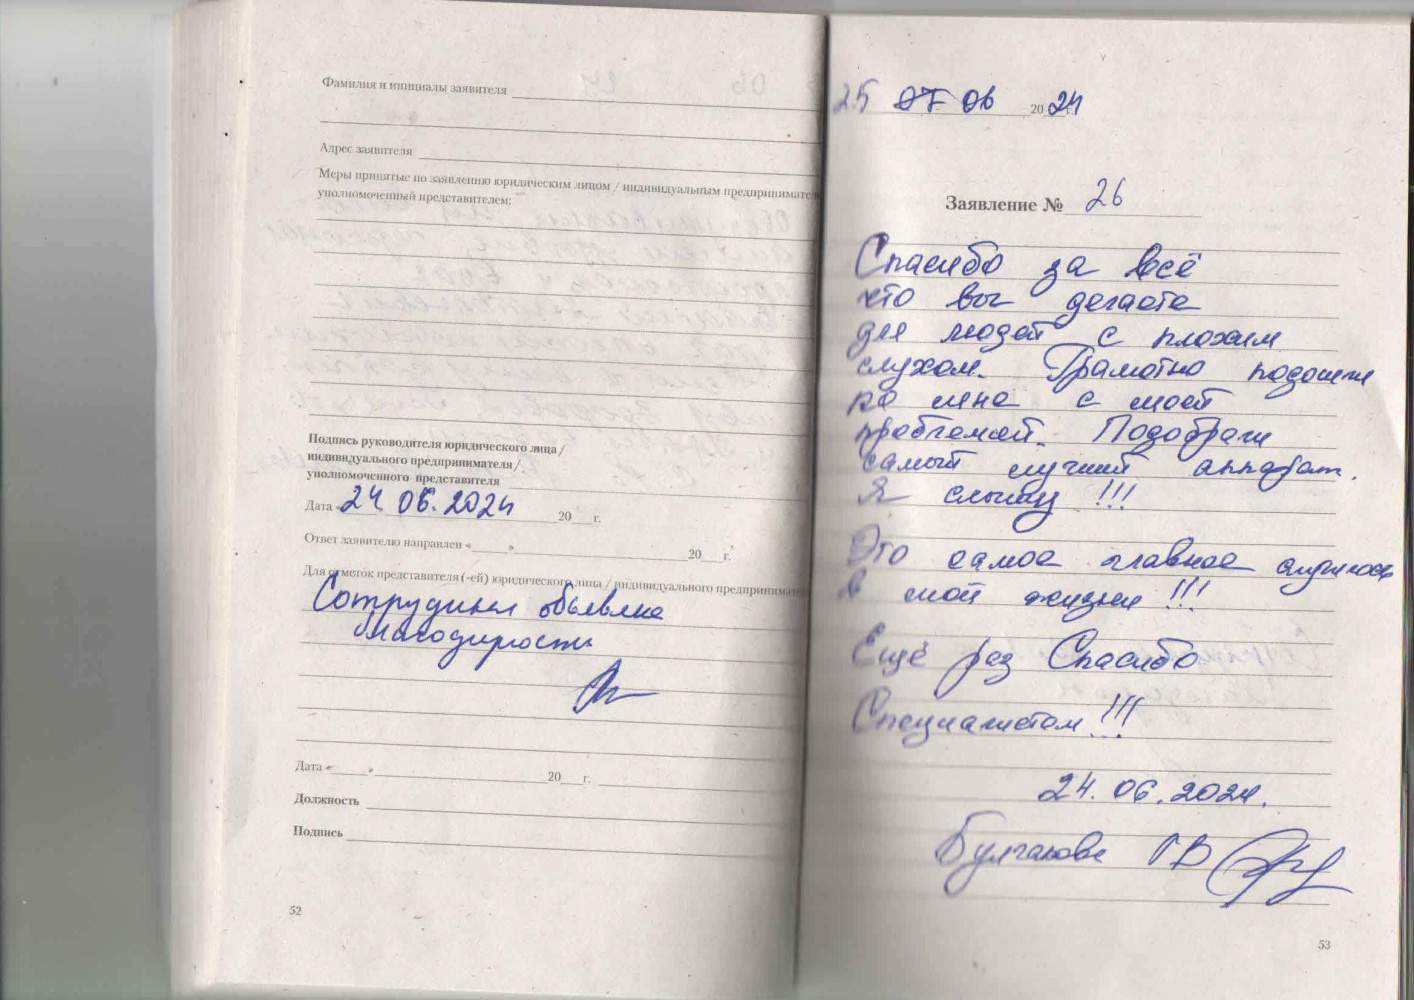 Фамилия и инициалы заявителя
Адрес заявителя
Меры принятые по заявлению юридическим лицом / индивидуальным предпринимател
уполномоченный представителем:
Подпись руководителя юридического лица /
индивидуального предпринимателя /
уполномоченного представителя
Дата « 24 06. 2024 20 г.
Ответ заявителю направлен « » 20 г.
Для отметок представителя (-ей) юридического лица / индивидуального предпринимател
Сотрудникам объявлена
благодарность
Дата « » 20 г.
Должность
Подпись
52
25 07 06 20 24 г.
Заявление № 26
Спасибо за всё
что вы делаете
для людей с плохим
слухом. Грамотно подошли
ко мне с моей
проблемой. Подобрали
самый лучший аппарат.
Я слышу !!!
Это самое главное
в моей жизни !!!
Ещё раз Спасибо
Специалистам !!!
24. 06. 2024.
Булгакова ГВ
53